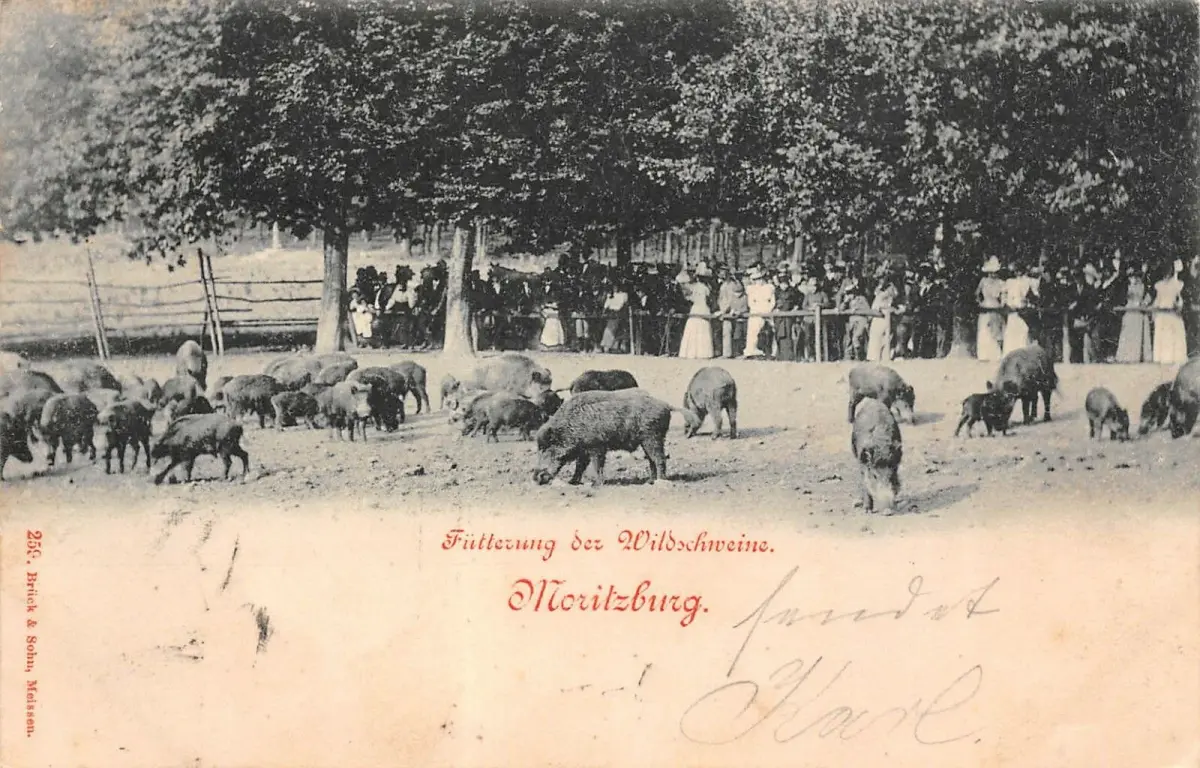 Fütterung der Wildschweine.
Moritzburg.
sendet
Karl.
259. Brück & Sohn, Meissen.